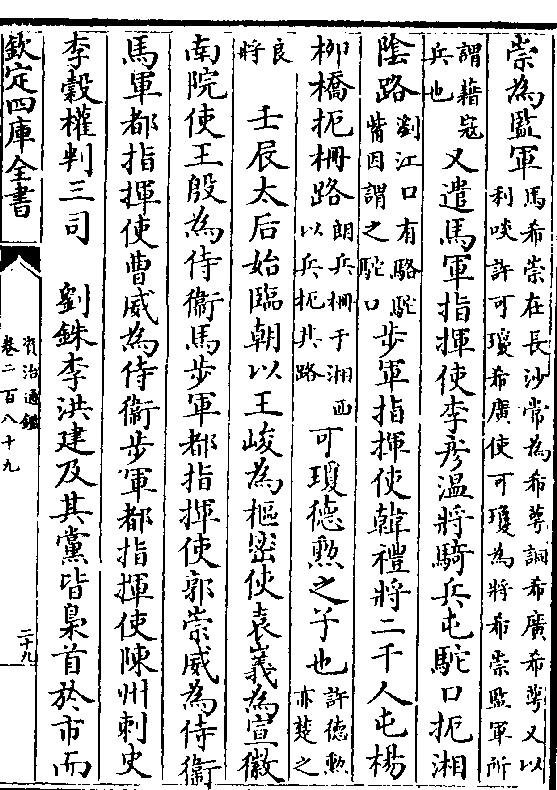 崇為監軍馬希崇在長沙常為希萼詗希廣希萼又以利啖許可瓊希廣使可瓊為將希崇監軍所
謂藉寇兵也又遣馬軍指揮使李彦溫將騎兵屯駝口扼湘
陰路劉江口有駱駝觜因謂之駝口步軍指揮使韓禮將二千人屯楊
柳橋扼柵路朗兵柵于湘西以兵扼其路可瓊德勲之子也許德勲亦楚之
良將壬辰太后始臨朝以王峻為樞密使袁㠖為宣徽
南院使王殷為侍衞馬步軍都指揮使郭崇威為侍衞
馬軍都指揮使曹威為侍衞步軍都指揮使陳州刺史
李穀權判三司劉銖李洪建及其黨皆梟首於市而
欽定四庫全書
資治通鑑
卷二百八十九
二十九